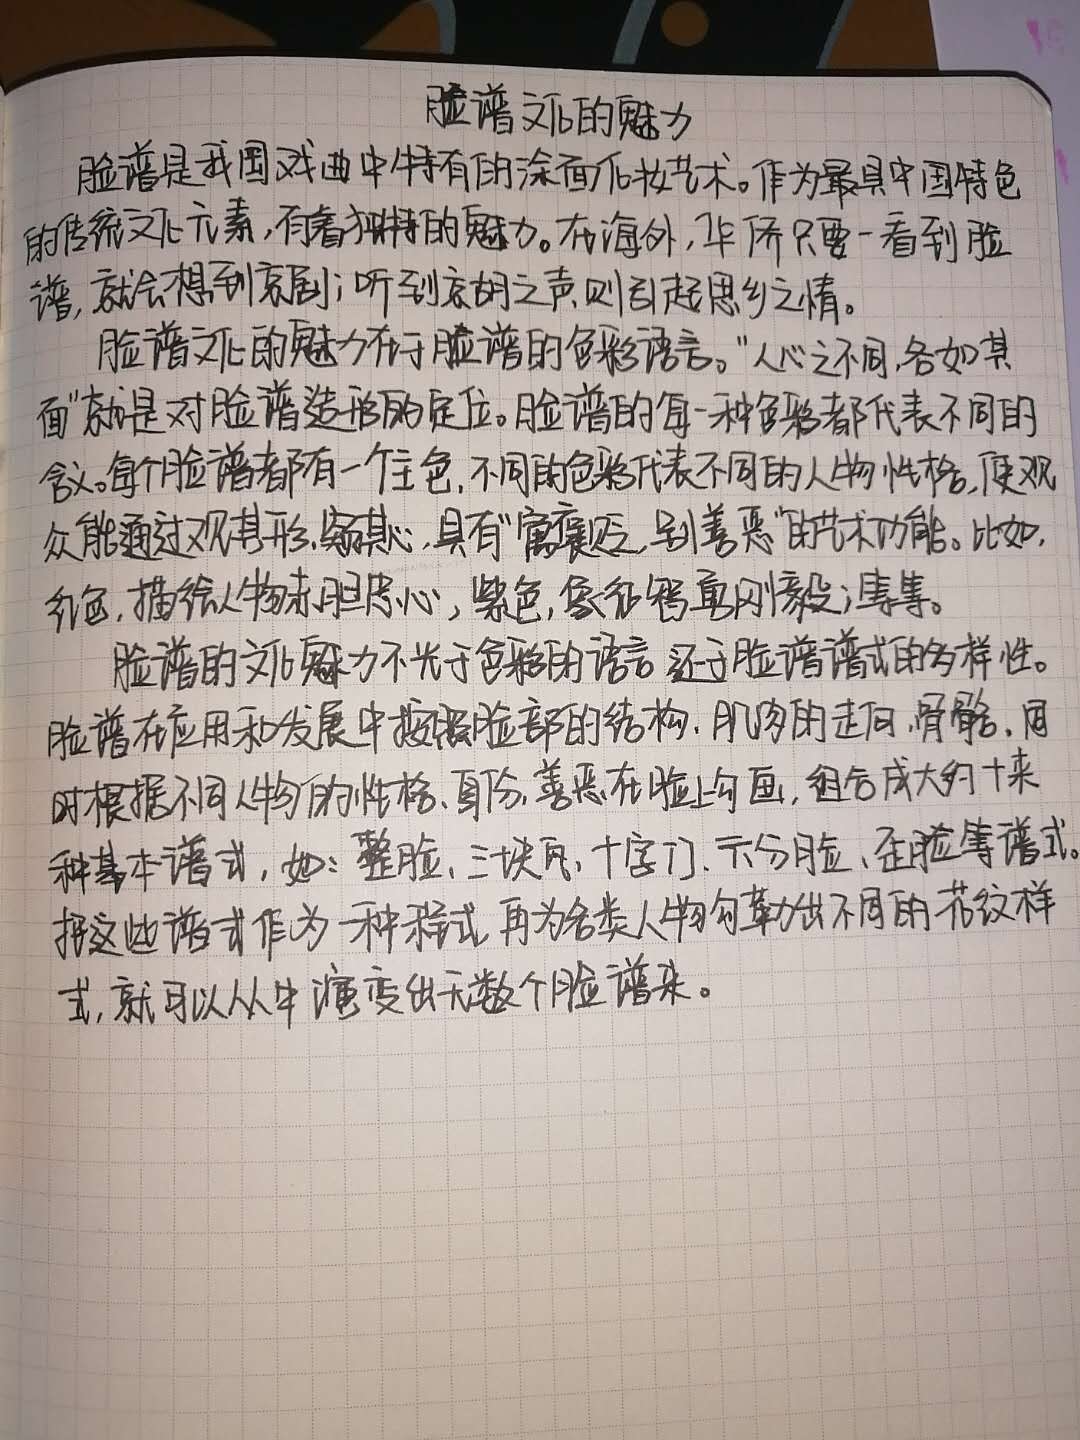 脸谱文化的魅力
脸谱是我国戏曲中特有的涂面化妆艺术。作为最具中国特色
的传统文化元素,有着独特的魅力。在海外,华侨只要一看到脸
谱,就会想到京剧;听到京胡之声,则引起思乡之情。
脸谱文化的魅力在于脸谱的色彩语言。"人心之不同,各如其
面"就是对脸谱造形的定位。脸谱的每一种色彩都代表不同的
含义。每个脸谱都有一个主色,不同的色彩代表不同的人物性格,使观
众能通过观其形,窥其心,具有"寓褒贬,别善恶"的艺术功能。比如,
红色,描绘人物赤胆忠心,紫色,象征智勇刚毅;等等。
脸谱的文化魅力不光于色彩的语言 还于脸谱谱式的多样性。
脸谱在应用和发展中按照脸部的结构、肌肉的走向、骨骼、同
时根据不同人物的性格、身份、善恶在脸上勾画,组合成大约十来
种基本谱式,如:整脸、三块瓦、十字门、六分脸、歪脸等谱式。
把这些谱式作为一种程式,再为各类人物勾勒出不同的花纹样
式,就可以从中演变出无数个脸谱来。